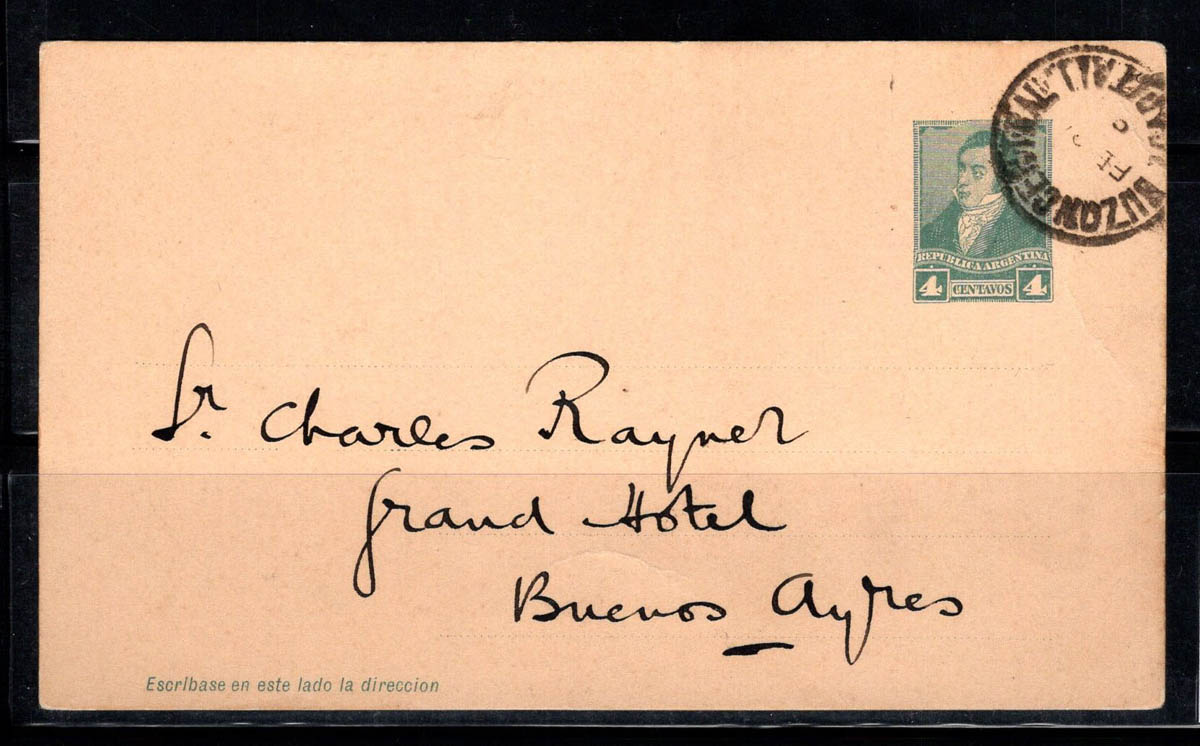 BUZON CENTRAL
FE
REPUBLICA ARGENTINA
4 CENTAVOS 4
Sr. Charles Rayner
Grand Hotel
Buenos Ayres
Escribase en este lado la direccion